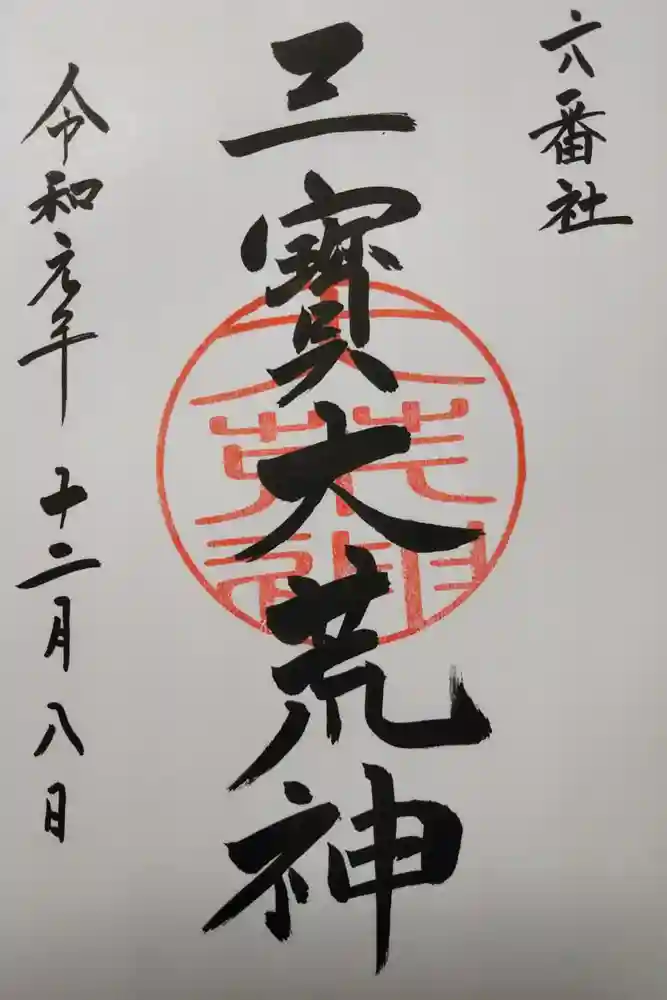 六番社
三寳大荒神
令和元年 十二月八日